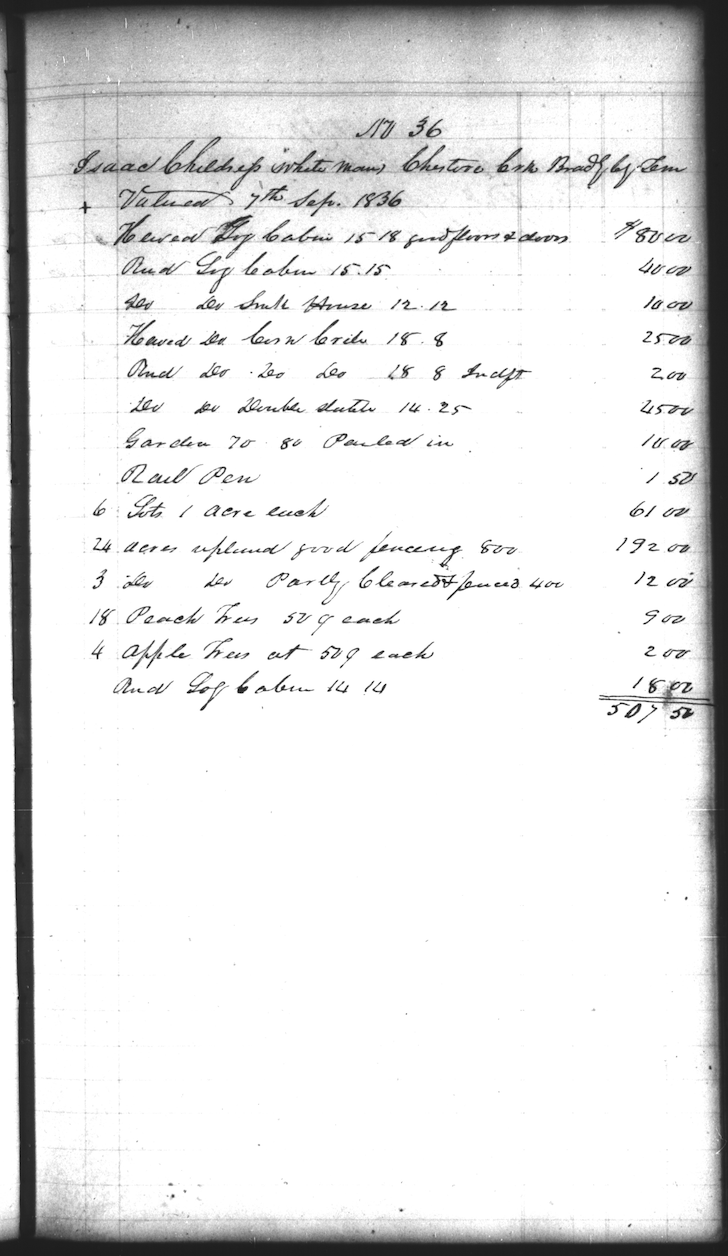 No 36
Isaac Childress (White man) Chestoe Crk Bradly Cty Ten
+ Valued 7th Sep. 1836
Hewed Log Cabin 15 18 good floors & doors $80 00
Rnd Log Cabin 15.15 40 00
Do Do Smk House 12.12 10 00
Hewed Do Corn Crib 18.8 25 00
Rnd Do Do Do 18 8 Indft 2 00
Do Do Double stable 14.25 45 00
Garden 70 80 Pailed in 10 00
Rail Pen 1 50
6 Lots 1 acre each 61 00
24 acres upland good fencing 800 192 00
3 Do Do Partly Cleared & fenced 400 12 00
18 Peach Trees 50¢ each 9 00
4 Apple Trees at 50¢ each 2 00
Rnd Log Cabin 14 14 18 00
507 50